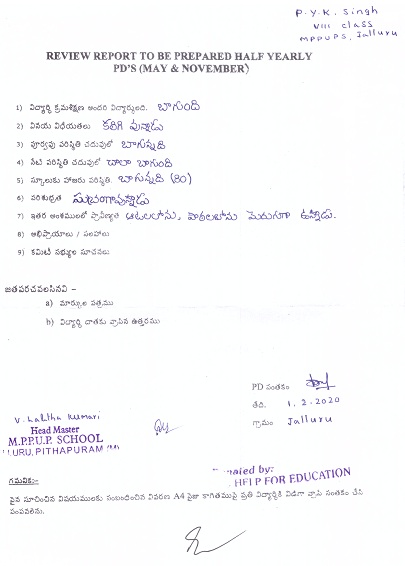 P.Y.K. Singh
VIII class
MPPUPS, Jalluru
REVIEW REPORT TO BE PREPARED HALF YEARLY
PD'S (MAY & NOVEMBER)
1) విద్యార్థి క్రమశిక్షణ అందరి విద్యార్థులది. బాగుంది
2) వినయ విధేయతలు కలిగి వున్నాడు
3) పూర్వపు పరిస్థితి చదువులో బాగున్నది
4) నేటి పరిస్థితి చదువులో చాలా బాగుంది
5) స్కూలుకు హాజరు పరిస్థితి. బాగున్నది (80)
6) పరిశుభ్రత శుభ్రంగావున్నాడు
7) ఇతర అంశములలో ప్రావీణ్యత ఆటలలోను, పాటలలోను మెరుగుగా ఉన్నాడు.
8) అభిప్రాయాలు / సలహాలు
9) కమిటీ సభ్యుల సూచనలు
జతపరచవలసినవి –
a) మార్కుల పత్రము
b) విద్యార్థి దాతకు వ్రాసిన ఉత్తరము
PD సంతకం
తేది. 1.2.2020
గ్రామం Jalluru
V. Lalitha Kumari
Head Master
M.P.P.U.P. SCHOOL
LURU, PITHAPURAM (M)
by:
HELP FOR EDUCATION
గమనిక:-
పైన సూచించిన విషయములకు సంబంధించిన వివరణ A4 సైజు కాగితముపై ప్రతి విద్యార్థికి విడిగా వ్రాసి సంతకం చేసి
పంపవలెను.